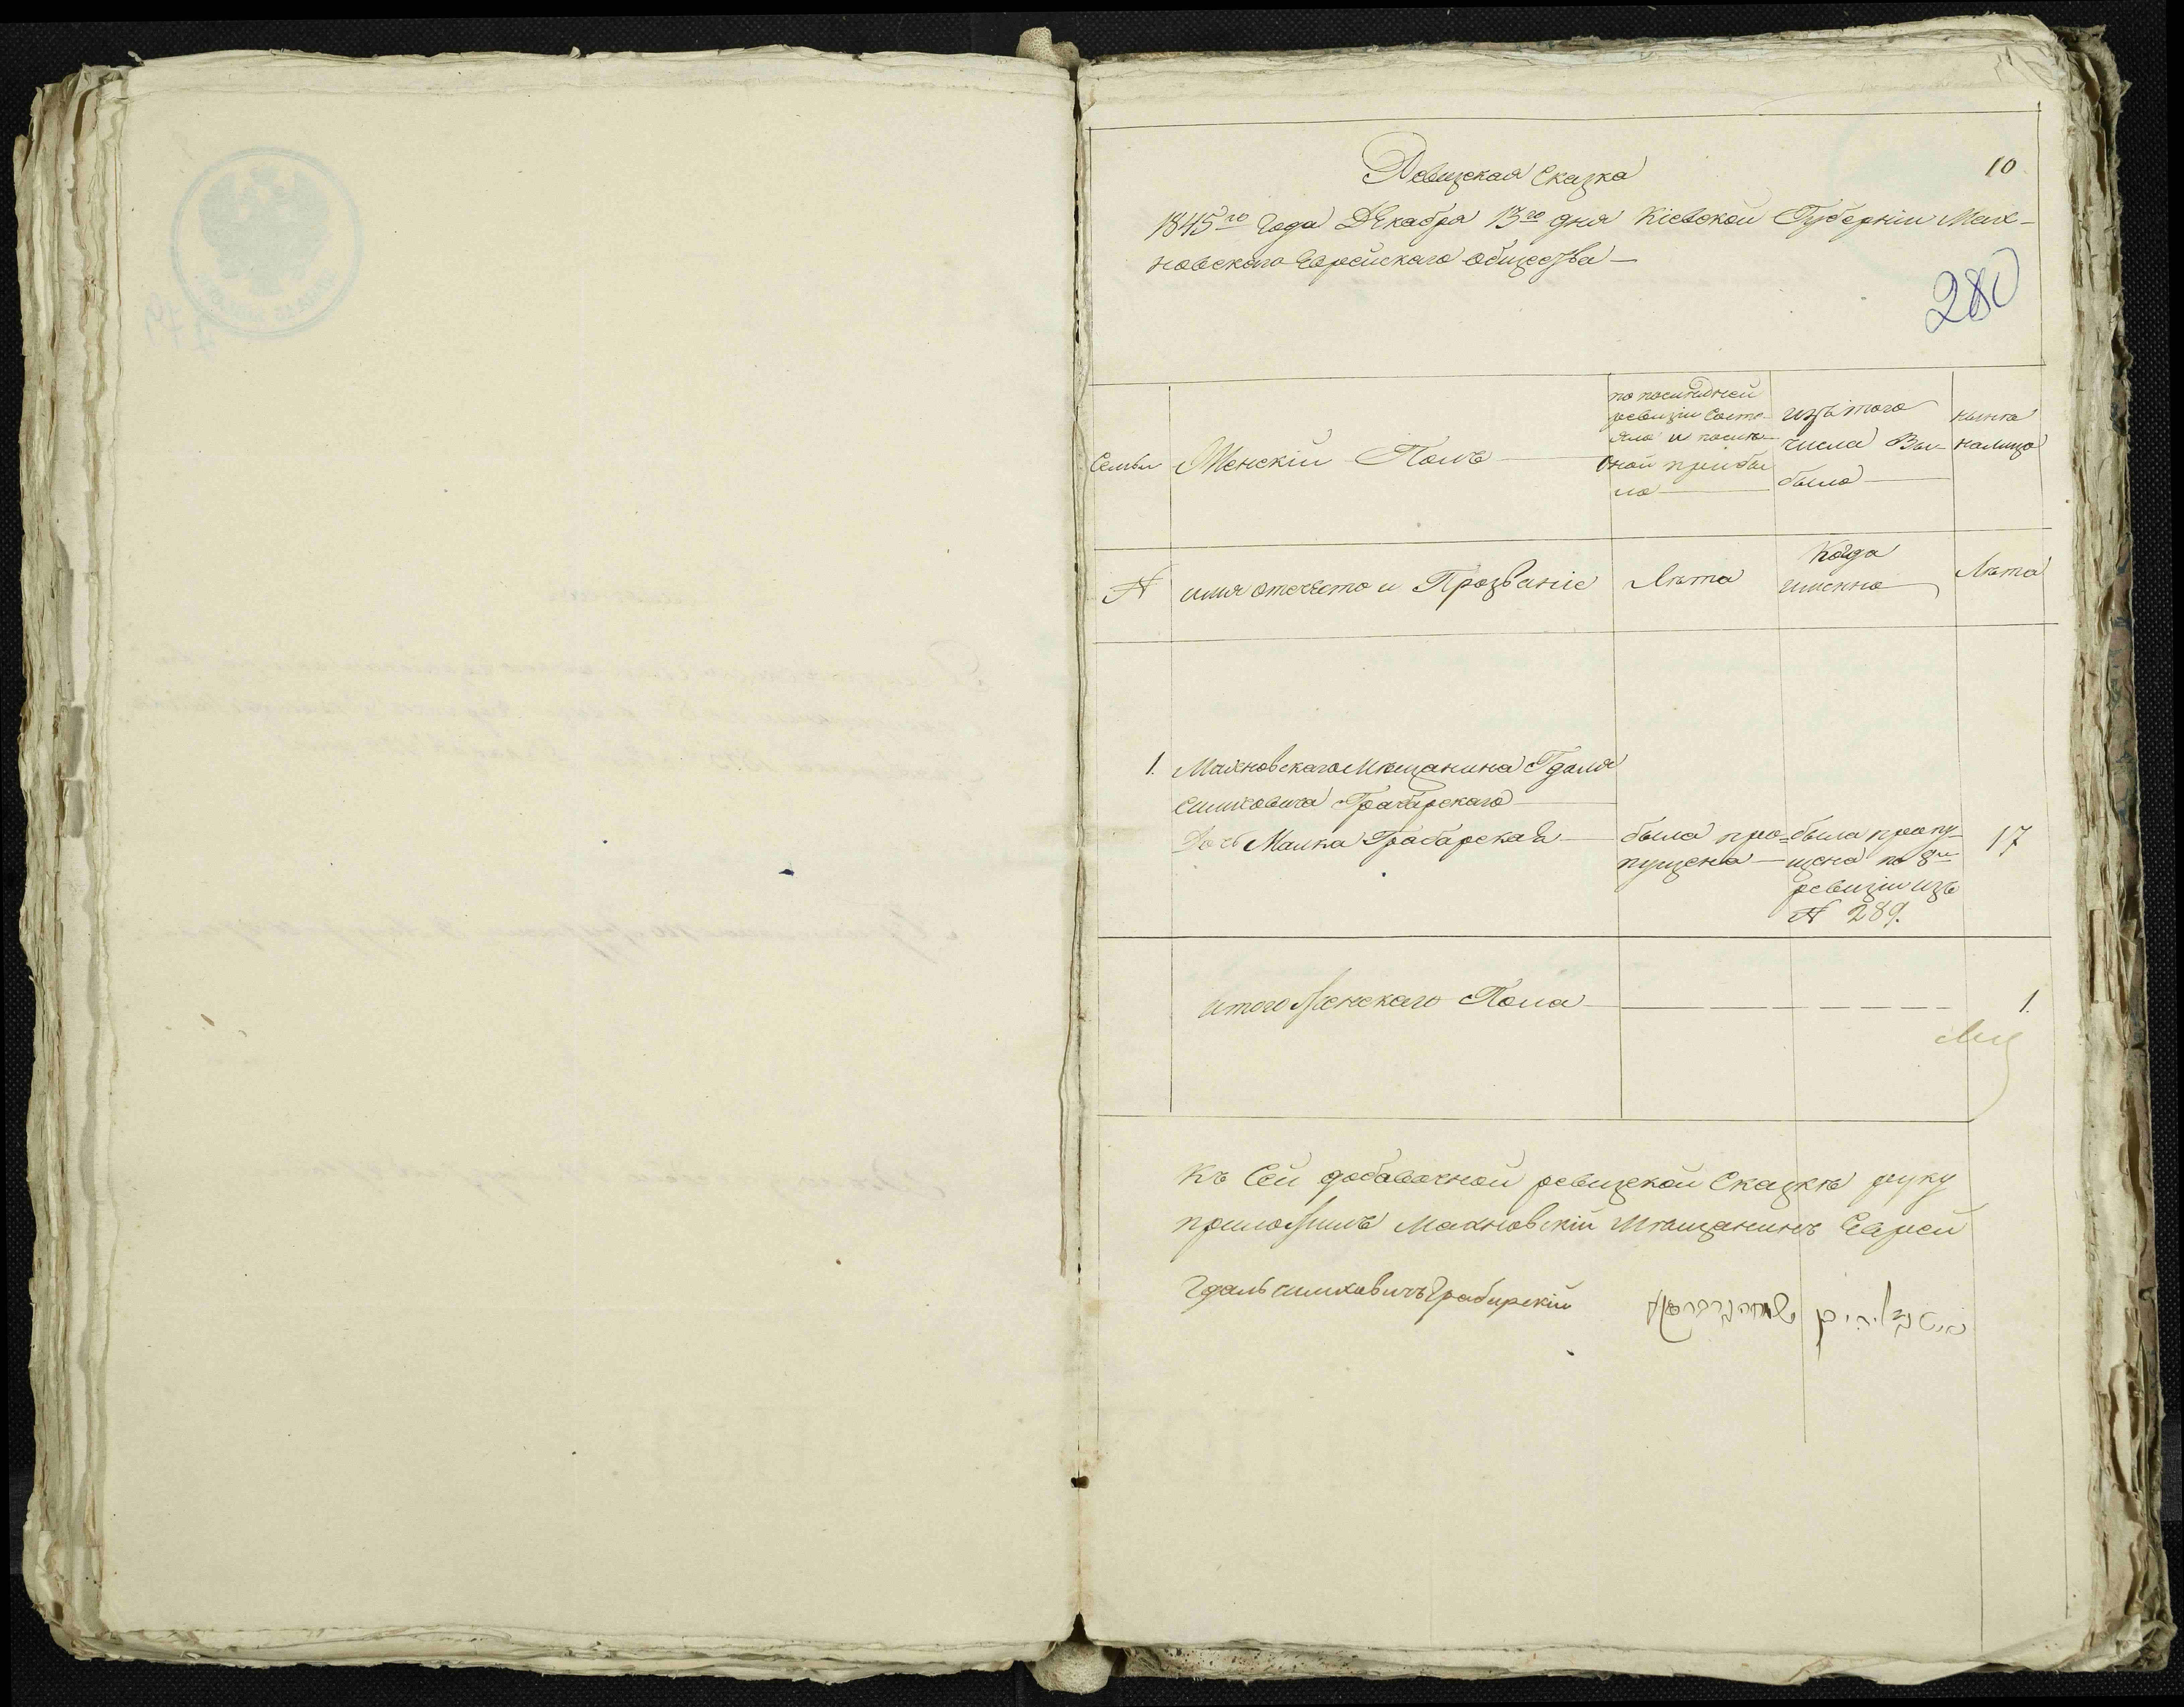 10
Ревизская Сказка
1845го Года Декабря 13го дня Кіевской Губерніи Мах-
новского Еврейскаго общества —
280
Семьи
Женскій Полъ
по последней
ревизіи состо-
яло и после
оной прибы
ло
изъ того
числа Вы-
было
ныне
налицо
№
имя отечество и Прозваніе
Лѣта
Когда
именно
Лѣта
1. Махновскаго Мещанина Гдаля
Симховича Грабарскаго
Дочь Малка Грабарская
была про-
пущена
была пропу-
щена по 8й
ревизіи изъ
№ 289.
17
итого Женскаго Пола — — — — — — 1.
Къ Сей добавочной ревизской Сказкѣ руку
приложилъ Махновскій Мѣщанинъ Еврей
Гдаль Симховичъ Грабарскій